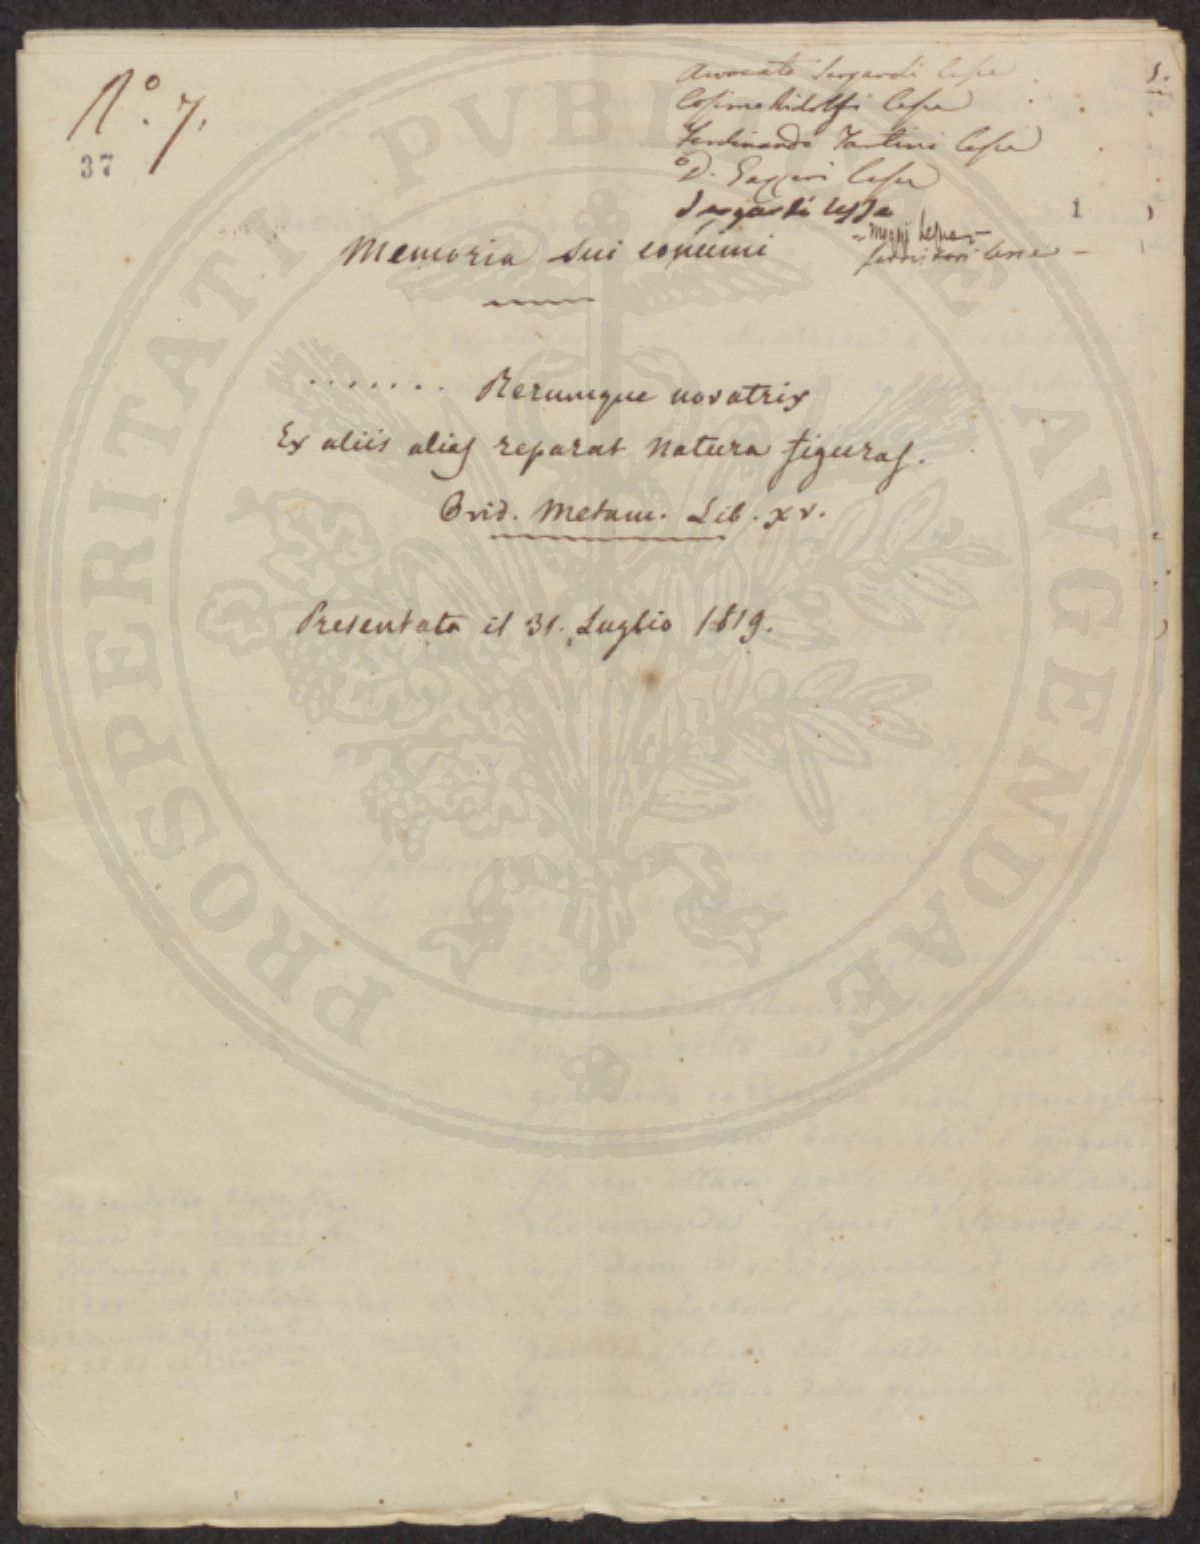 N.º 7.
37
Avvocato Sergardi lesse
Cosimo Ridolfi lesse
Ferdinando Tartini lesse
D. Gazzeri lesse
Sergardi lesse
1
lesse
Memoria sui concimi
....... Rerumque novatrix
Ex aliis alias reparat Natura figuras.
Ovid. Metam. Lib. XV.
Presentata il 31. Luglio 1819.
PROSPERITATI PUBLICAE AVGENDAE